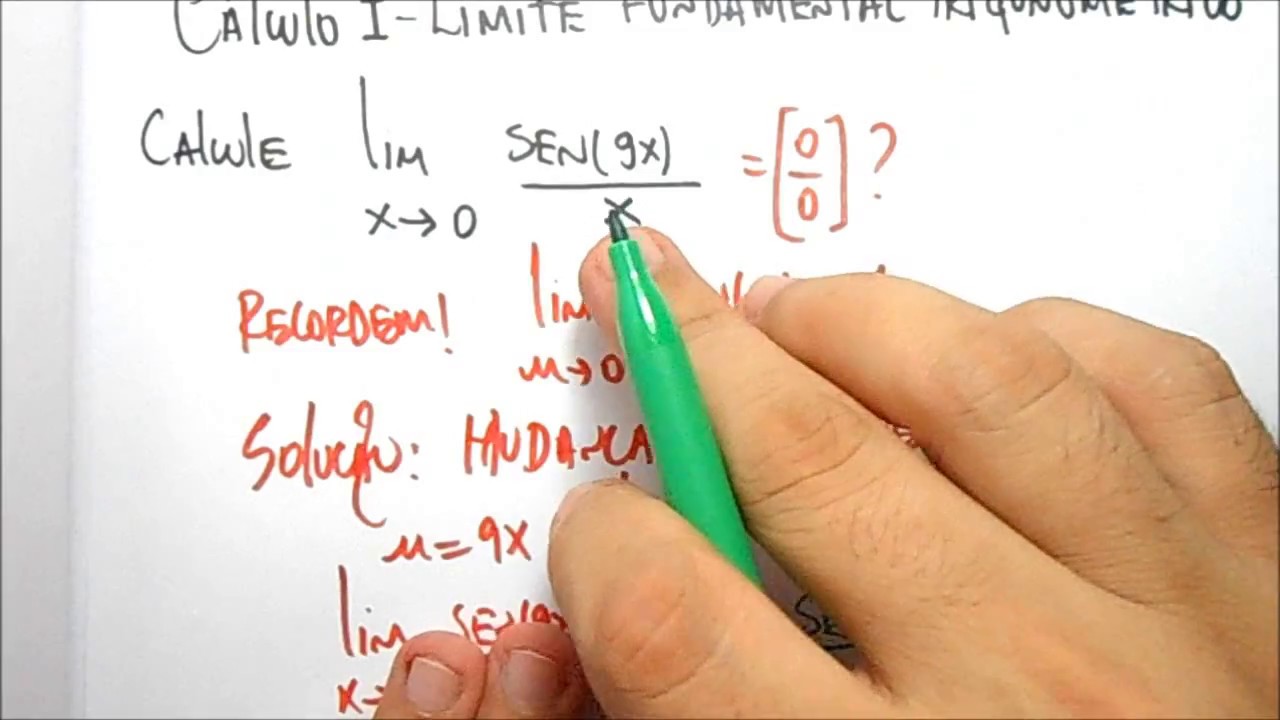 CÁLCULO I - LIMITE FUNDAMENTAL TRIGONOMÉTRICO
CALCULE lim SEN(9x) = [0/0] ?
x→0 x
RECORDEM! lim
u→0
SOLUÇÃO: MUDANÇA
u=9x
lim SEN(9x
x→